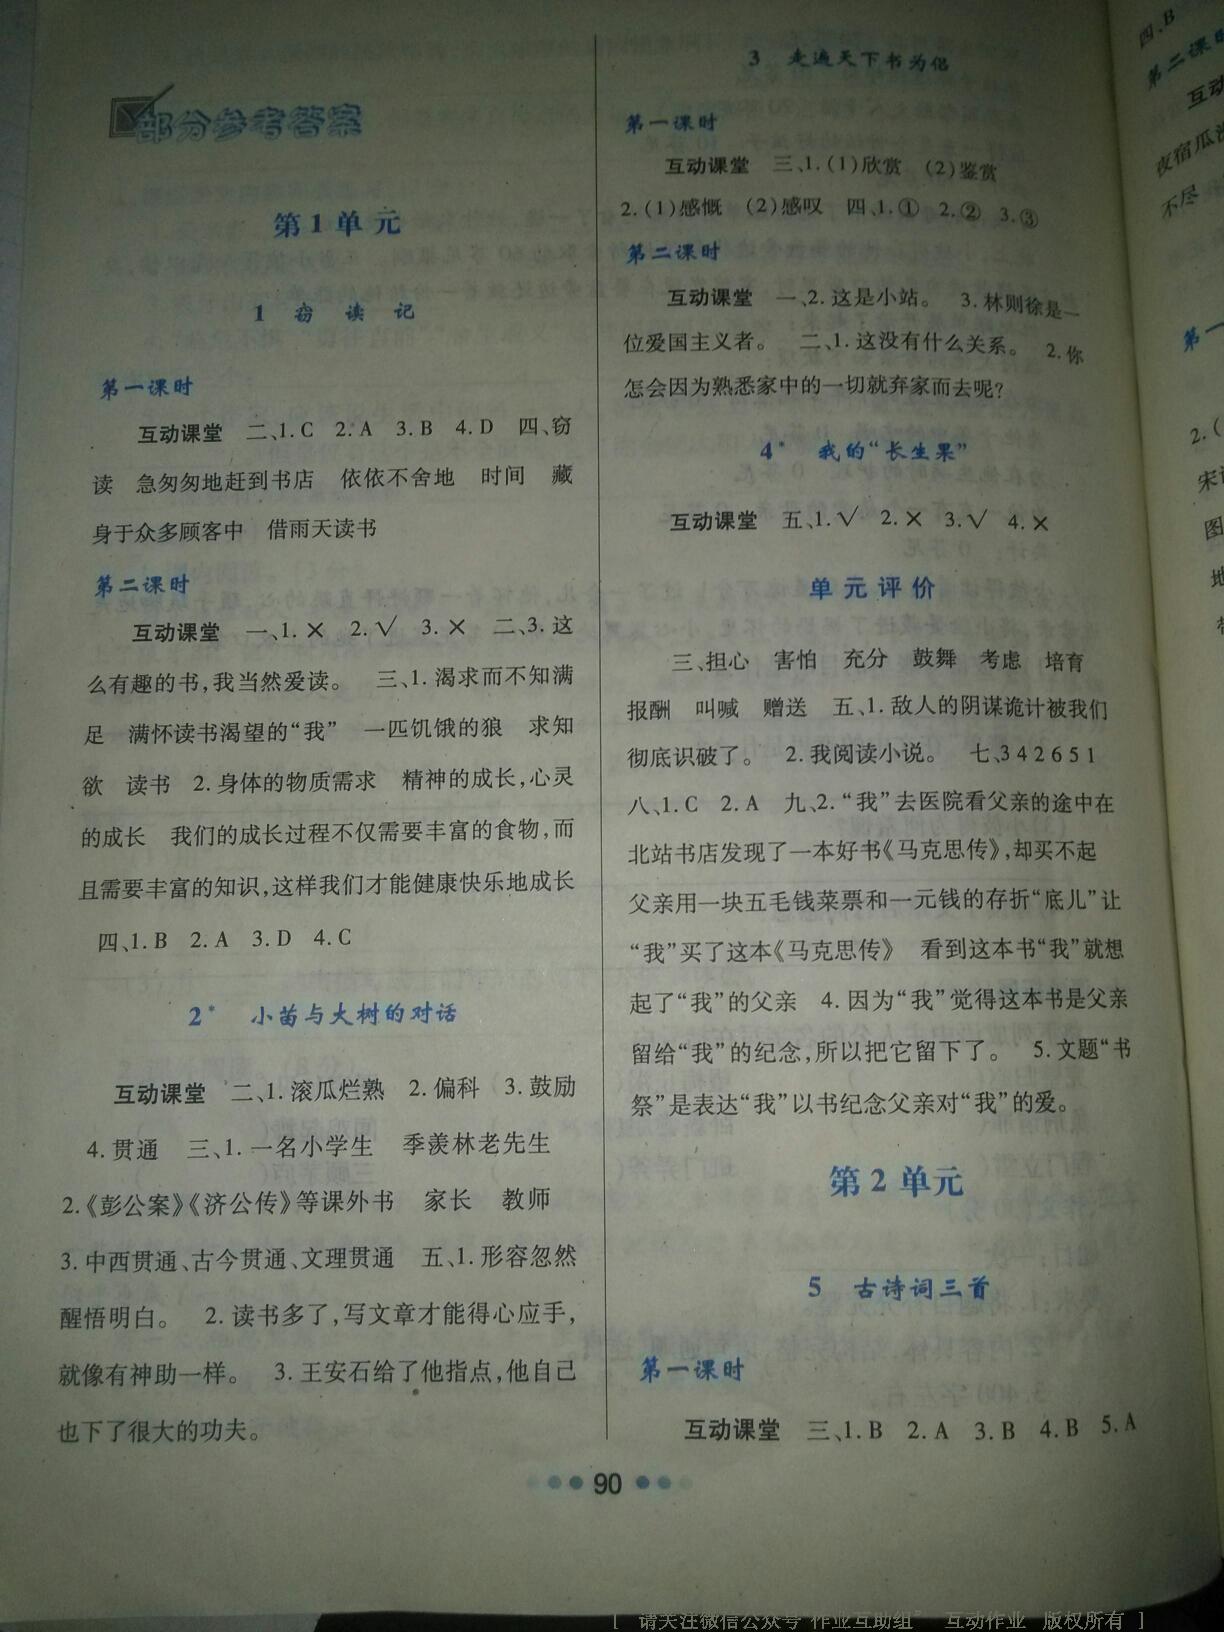 部分参考答案
第1单元
1 窃读记
第一课时
互动课堂 二、1.C 2.A 3.B 4.D 四、窃
读 急匆匆地赶到书店 依依不舍地 时间 藏
身于众多顾客中 借雨天读书
第二课时
互动课堂 一、1.× 2.√ 3.× 二、3.这
么有趣的书,我当然爱读。 三、1.渴求而不知满
足 满怀读书渴望的“我” 一匹饥饿的狼 求知
欲 读书 2.身体的物质需求 精神的成长,心灵
的成长 我们的成长过程不仅需要丰富的食物,而
且需要丰富的知识,这样我们才能健康快乐地成长
四、1.B 2.A 3.D 4.C
2* 小苗与大树的对话
互动课堂 二、1.滚瓜烂熟 2.偏科 3.鼓励
4.贯通 三、1.一名小学生 季羡林老先生
2.《彭公案》《济公传》等课外书 家长 教师
3.中西贯通、古今贯通、文理贯通 五、1.形容忽然
醒悟明白。 2.读书多了,写文章才能得心应手,
就像有神助一样。 3.王安石给了他指点,他自己
也下了很大的功夫。
3 走遍天下书为侣
第一课时
互动课堂 三、1.(1)欣赏 (2)鉴赏
2.(1)感慨 (2)感叹 四、1.① 2.② 3.③
第二课时
互动课堂 一、2.这是小站。 3.林则徐是一
位爱国主义者。 二、1.这没有什么关系。 2.你
怎会因为熟悉家中的一切就弃家而去呢?
4* 我的“长生果”
互动课堂 五、1.√ 2.× 3.√ 4.×
单元评价
三、担心 害怕 充分 鼓舞 考虑 培育
报酬 叫喊 赠送 五、1.敌人的阴谋诡计被我们
彻底识破了。 2.我阅读小说。 七、3 4 2 6 5 1
八、1.C 2.A 九、2.“我”去医院看父亲的途中在
北站书店发现了一本好书《马克思传》,却买不起
父亲用一块五毛钱菜票和一元钱的存折“底儿”让
“我”买了这本《马克思传》 看到这本书“我”就想
起了“我”的父亲 4.因为“我”觉得这本书是父亲
留给“我”的纪念,所以把它留下了。 5.文题“书
祭”是表达“我”以书纪念父亲对“我”的爱。
第2单元
5 古诗词三首
第一课时
互动课堂 三、1.B 2.A 3.B 4.B 5.A
90
四、B
第二课时
互动
夜宿瓜
不尽
第一
2.(
宋
图
地
[ 请关注微信公众号“作业互助组” 互动作业 版权所有 ]